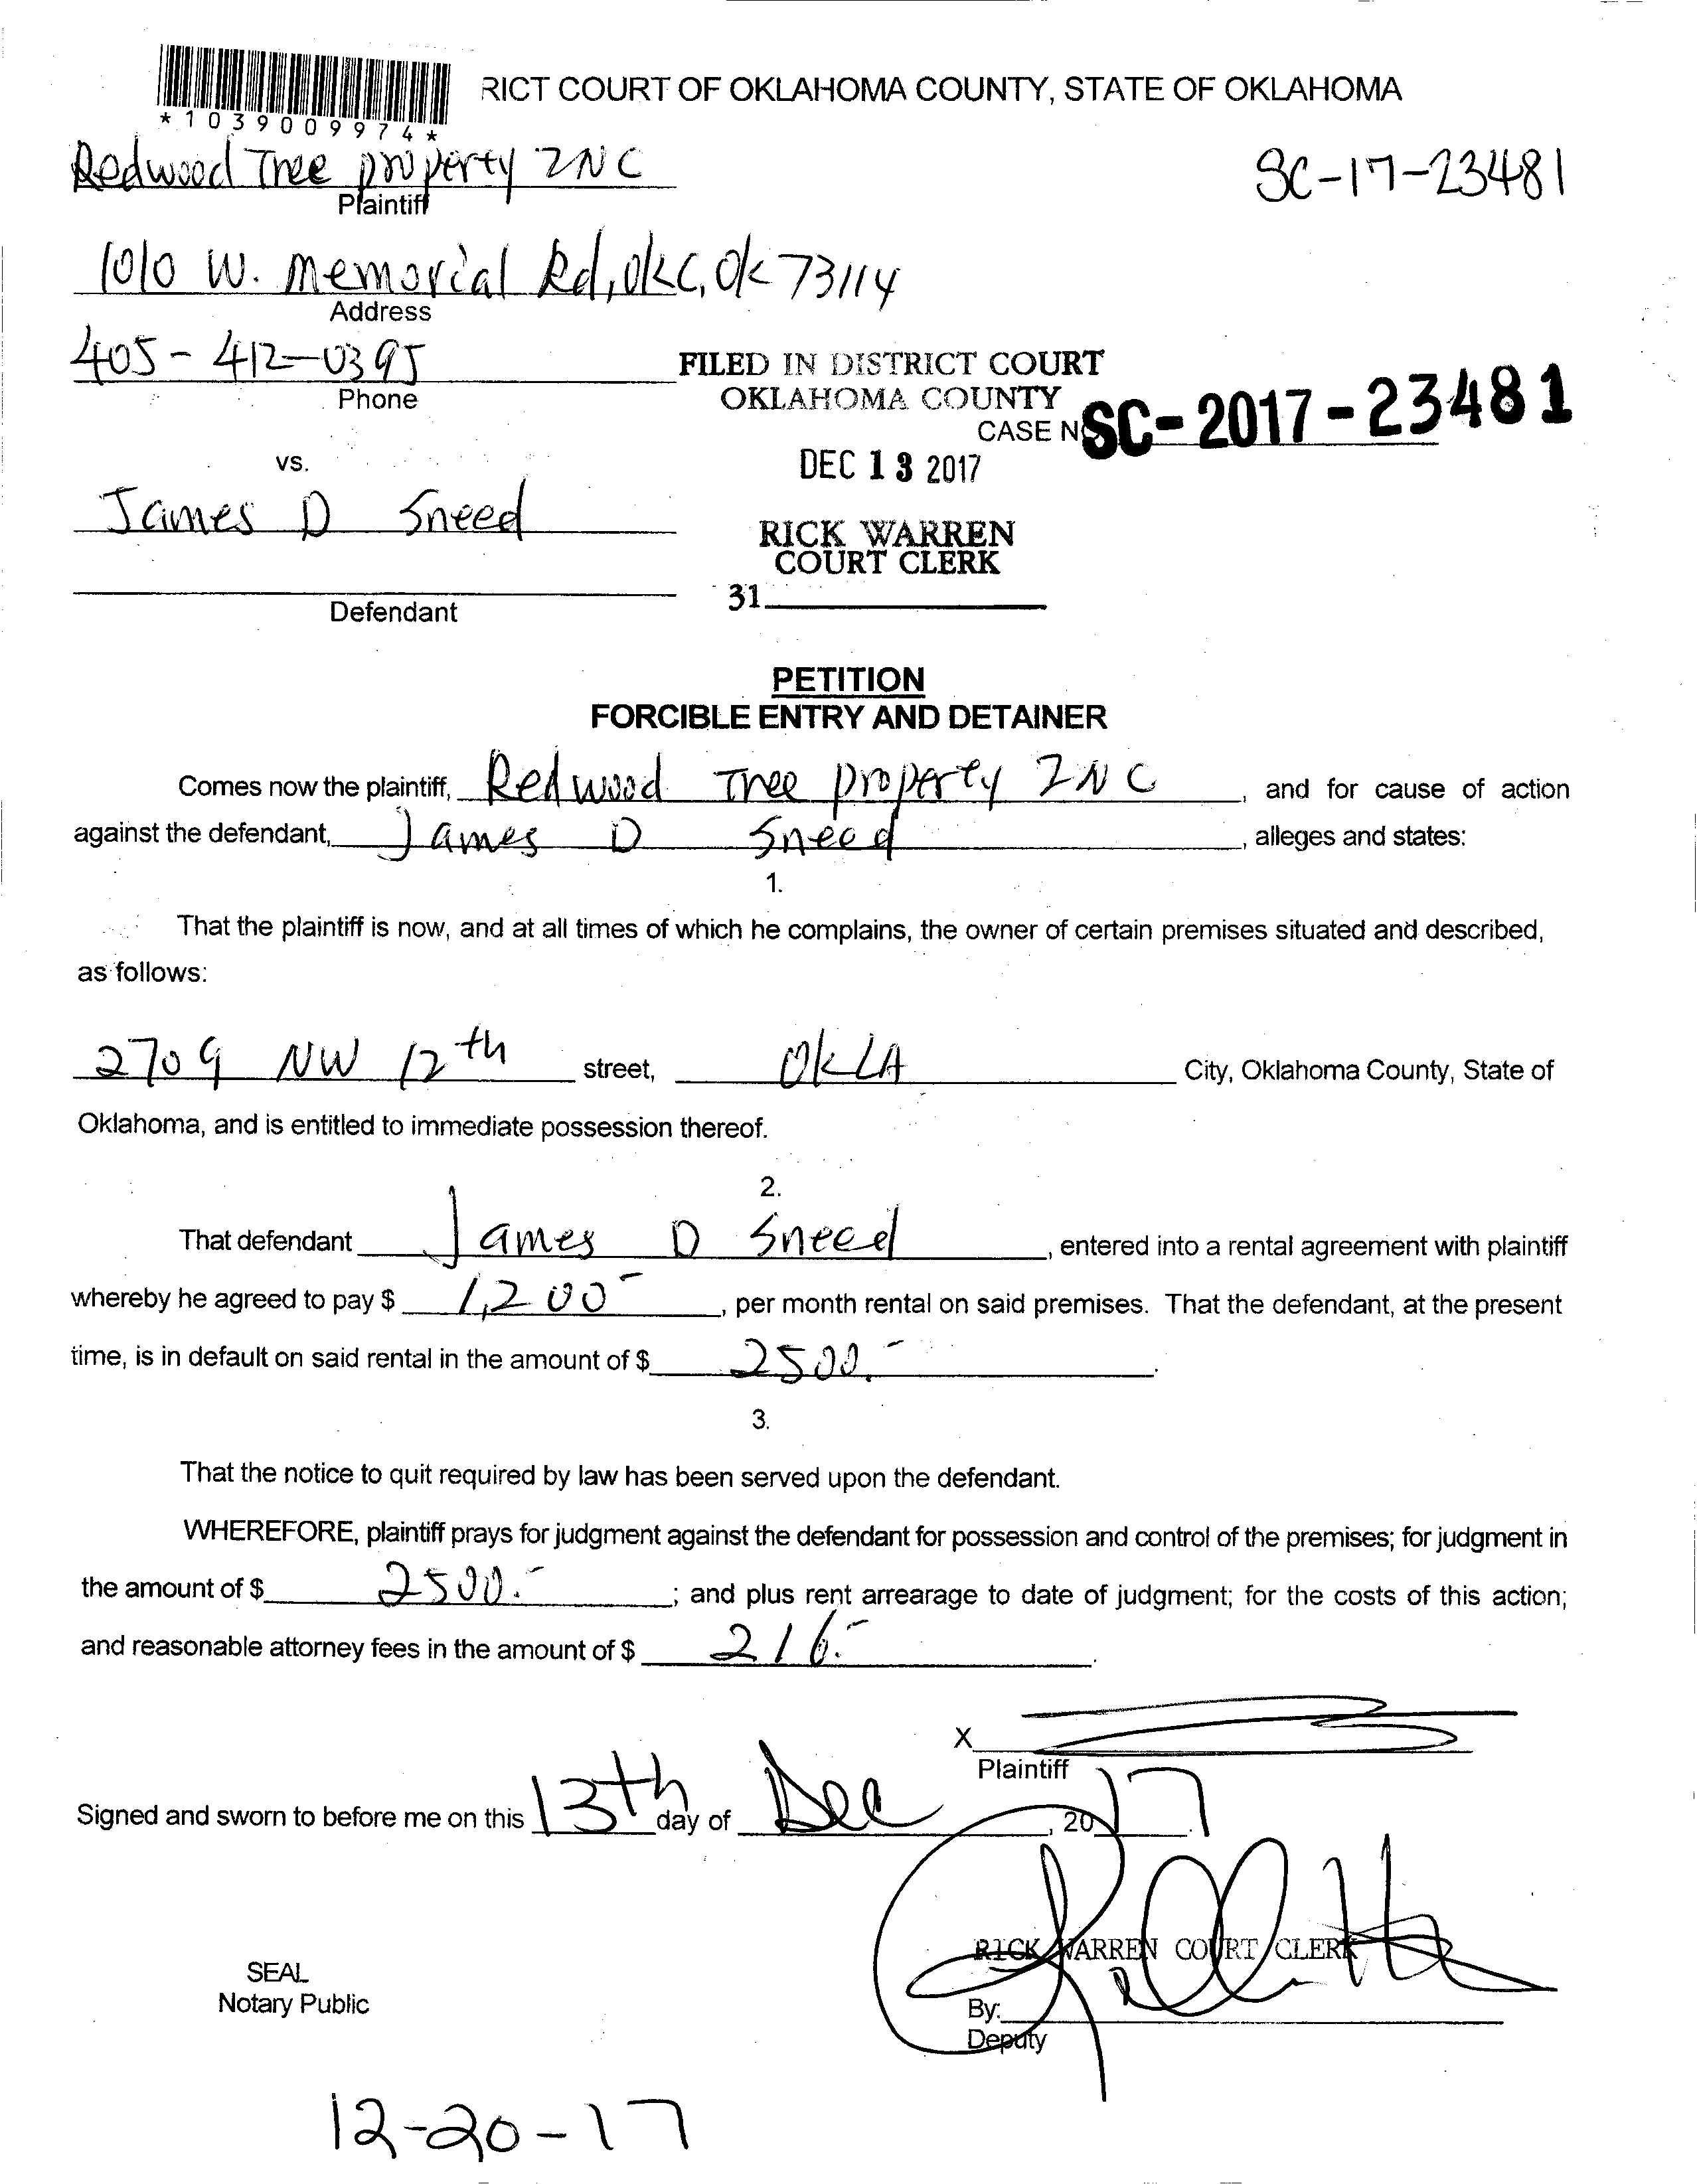 RICT COURT OF OKLAHOMA COUNTY, STATE OF OKLAHOMA
*1039009974*
Redwood Tree property INC
SC-17-23481
Plaintiff
1010 W. Memorial Rd, OKC, OK 73114
Address
405-412-0395
FILED IN DISTRICT COURT
Phone
OKLAHOMA COUNTY
CASE NO SC-2017-23481
vs.
DEC 13 2017
James D Sneed
RICK WARREN
COURT CLERK
31
Defendant
PETITION
FORCIBLE ENTRY AND DETAINER
Comes now the plaintiff, Redwood Tree property INC, and for cause of action
against the defendant, James D Sneed, alleges and states:
1.
That the plaintiff is now, and at all times of which he complains, the owner of certain premises situated and described,
as follows:
2709 NW 12th street, OKLA City, Oklahoma County, State of
Oklahoma, and is entitled to immediate possession thereof.
2.
That defendant James D Sneed, entered into a rental agreement with plaintiff
whereby he agreed to pay $ 1,200-, per month rental on said premises. That the defendant, at the present
time, is in default on said rental in the amount of $ 2500.-.
3.
That the notice to quit required by law has been served upon the defendant.
WHEREFORE, plaintiff prays for judgment against the defendant for possession and control of the premises; for judgment in
the amount of $ 2500.-; and plus rent arrearage to date of judgment; for the costs of this action;
and reasonable attorney fees in the amount of $ 216.-.
X
Plaintiff
Signed and sworn to before me on this 13th day of Dec, 2017.
RICK WARREN COURT CLERK
SEAL
Notary Public
By:
Deputy
12-20-17